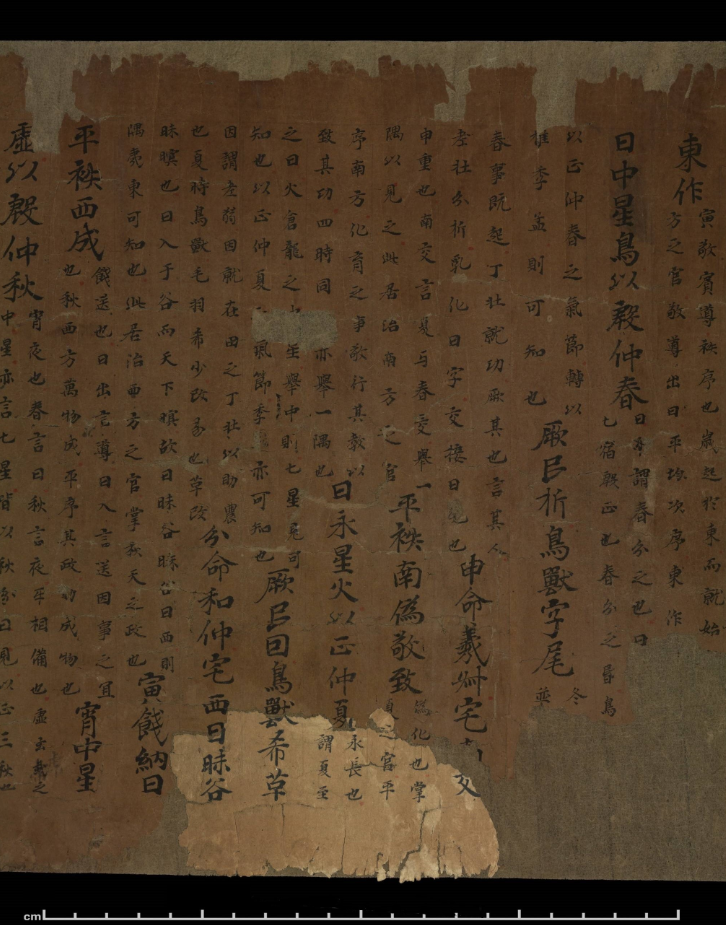 東作寅敬賓導秩序也歲起於東而就始
方之官敬導出日平均次序東作
日中星鳥以殷仲春日中謂春分之也日
七宿殷正也春分之昏鳥
以正仲春之氣節轉以
推季孟則可知也
厥民析鳥獸孳尾冬
春事既起丁壮就功厥其也言其人
老壮分析乳化曰字交接曰尾也
申命羲叔宅交
申重也南交言夏与春交舉一
隅以見之此居治南方之官
平秩南僞敬致僞化也掌
夏之官平
序南方化育之事敬行其教以
致其功四時同亦舉一隅也
日永星火以正仲夏永長也
謂夏至
之日火蒼龍之中星舉中則七星見可
知也以正仲夏氣節季亦可知也
厥民因鳥獸希革
因謂老弱因就在田之丁壮以助農
也夏時鳥獸毛羽希少改易也革改
分命和仲宅西曰昧谷
昧暝也日入于谷而天下暝故曰昧谷昧谷曰西則
隅夷東可知也此居治西方之官掌秋天之政也
寅餞納日
平秩西成餞送也日出言導日入言送因事之宜
也秋西方萬物成平序其政助成物也
宵中星
虛以殷仲秋宵夜也春言日秋言夜互相備也虛玄武之
中星亦言七星皆以秋分日見以正三秋也
cm